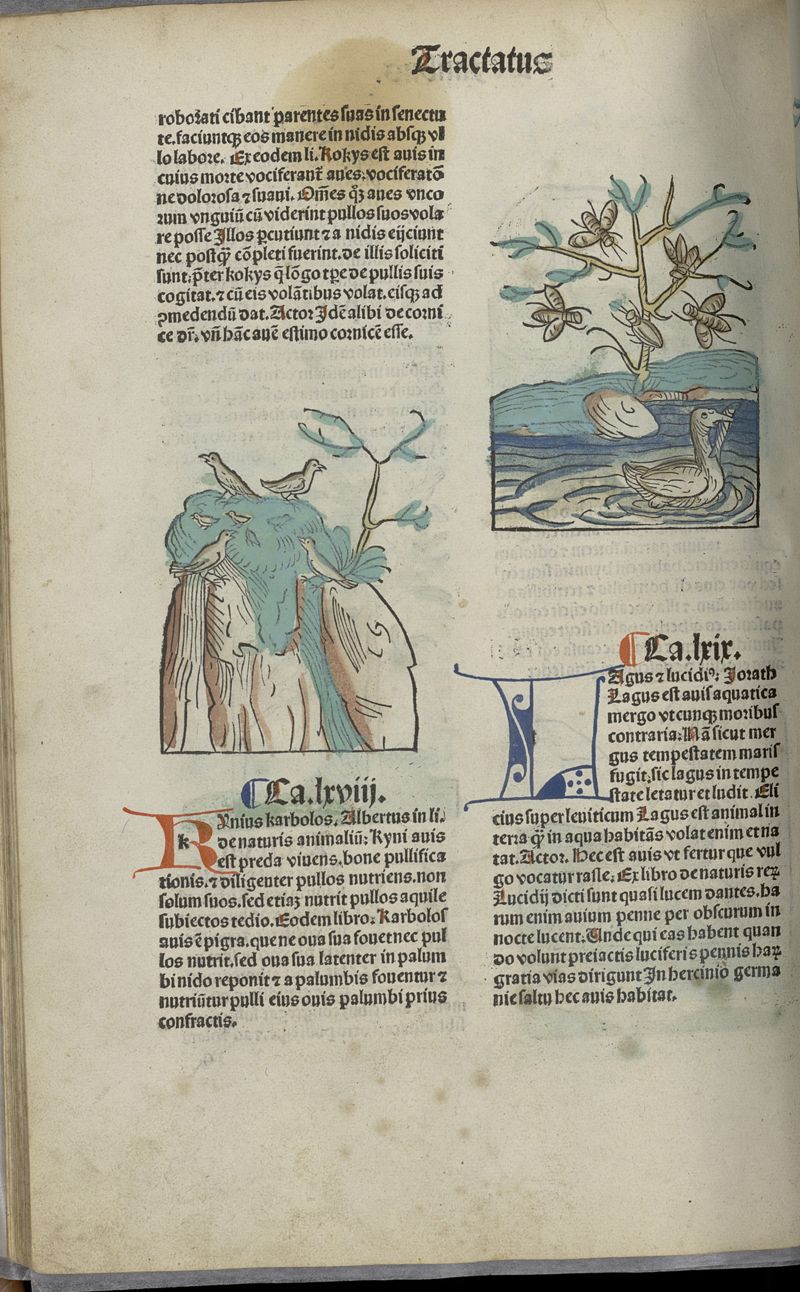 Tractatus
roborati cibant parentes suas in senectu
te. faciuntqꝫ eos manere in nidis absqꝫ vl
lo labore. Ex eodem li. Kokys est auis in
cuius morte vociferant̃ aues. vociferatõ
ne dolorosa ⁊ suaui. Om̃es qꝫ aues vnco
rum vnguiũ cũ viderint pullos suos vola
re posse Illos ꝑcutiunt ⁊ a nidis eijciunt
nec postꝗ̃ cõpleti fuerint. de illis soliciti
sunt. p̃ter kokys q̃ lõgo tꝑe de pullis suis
cogitat. ⁊ cũ eis volãtibus volat. eisqꝫ ad
ꝓmedendũ dat. Actor Idẽ alibi de corni
ce dr̃. vñ hãc auẽ estimo cornicẽ esse.
Ca. lxviij.
Kynius karbolos. Albertus in li.
de naturis animaliũ: Kyni auis
est preda viuens. bone pullifica
tionis. ⁊ diligenter pullos nutriens. non
solum suos. sed etiaꝫ nutrit pullos aquile
subiectos tedio. Eodem libro: Karbolos
auis ẽ pigra. que ne oua sua fouet nec pul
los nutrit. sed oua sua latenter in palum
bi nido reponit ⁊ a palumbis fouentur ⁊
nutriũtur pulli eius ouis palumbi prius
confractis.
Ca. lxix.
LAgus ⁊ lucidiꝰ: Jorath
Lagus est auis aquatica
mergo vtcunqꝫ moribus
contraria: Nã sicut mer
gus tempestatem maris
fugit: sic lagus in tempe
state letatur et ludit. Eli
cius super leuiticum Lagus est animal in
terra ꝗ̃ in aqua habitãs volat enim et na
tat. Actor. Hec est auis vt fertur que vul
go vocatur rasle: Ex libro de naturis reꝝ
Lucidij dicti sunt quasi lucem dantes. ha
rum enim auium penne per obscurum in
nocte lucent. Unde qui eas habent quan
do volunt preiactis luciferis pennis haꝝ
gratia vias dirigunt In hercinio germa
nie saltu hec auis habitat.